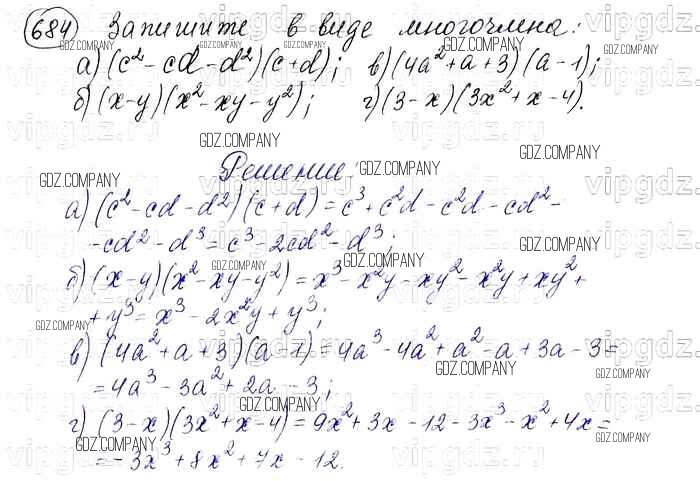 684 Запишите в виде многочлена:
а) (c² - cd - d²)(c + d); в) (4a² + a + 3)(a - 1);
б) (x - y)(x² - xy - y²); г) (3 - x)(3x² + x - 4).
Решение:
а) (c² - cd - d²)(c + d) = c³ + c²d - c²d - cd² -
- cd² - d³ = c³ - 2cd² - d³;
б) (x - y)(x² - xy - y²) = x³ - x²y - xy² - x²y + xy² +
+ y³ = x³ - 2x²y + y³;
в) (4a² + a + 3)(a - 1) = 4a³ - 4a² + a² - a + 3a - 3 =
= 4a³ - 3a² + 2a - 3;
г) (3 - x)(3x² + x - 4) = 9x² + 3x - 12 - 3x³ - x² + 4x =
= - 3x³ + 8x² + 7x - 12.